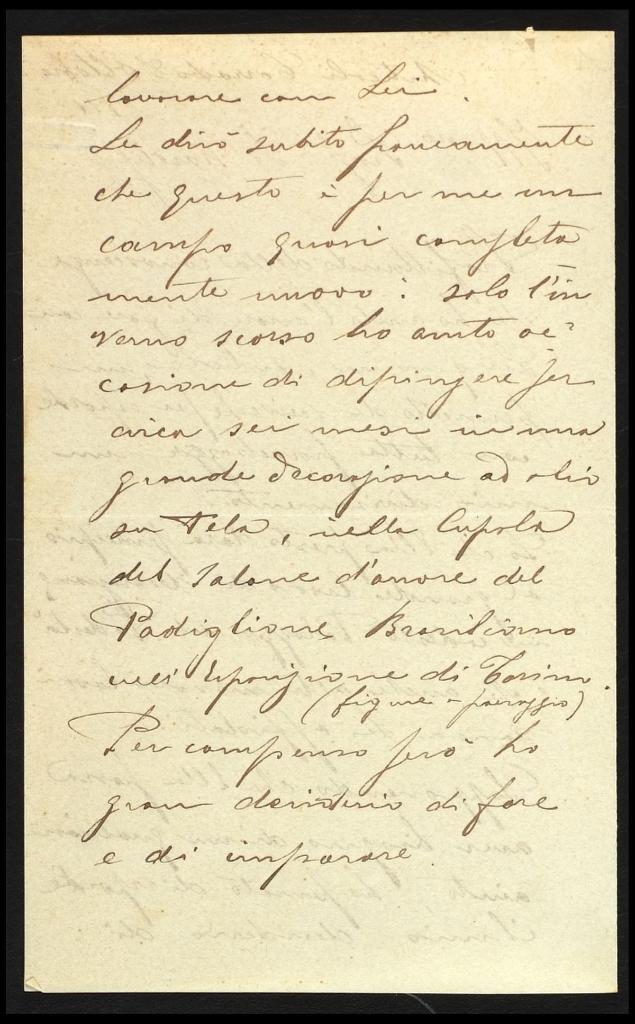 lavorare con Lei.
Le dirò subito francamente
che questo è per me un
campo quasi completa
mente nuovo: solo l'in
verno scorso ho avuto oc=
casione di dipingere per
circa sei mesi in una
grande decorazione ad olio
su tela, nella Cupola
del Salone d'onore del
Padiglione Brasiliano
nell'Esposizione di Torino.
(figure - paesaggio)
Per compenso però ho
gran desiderio di fare
e di imparare.